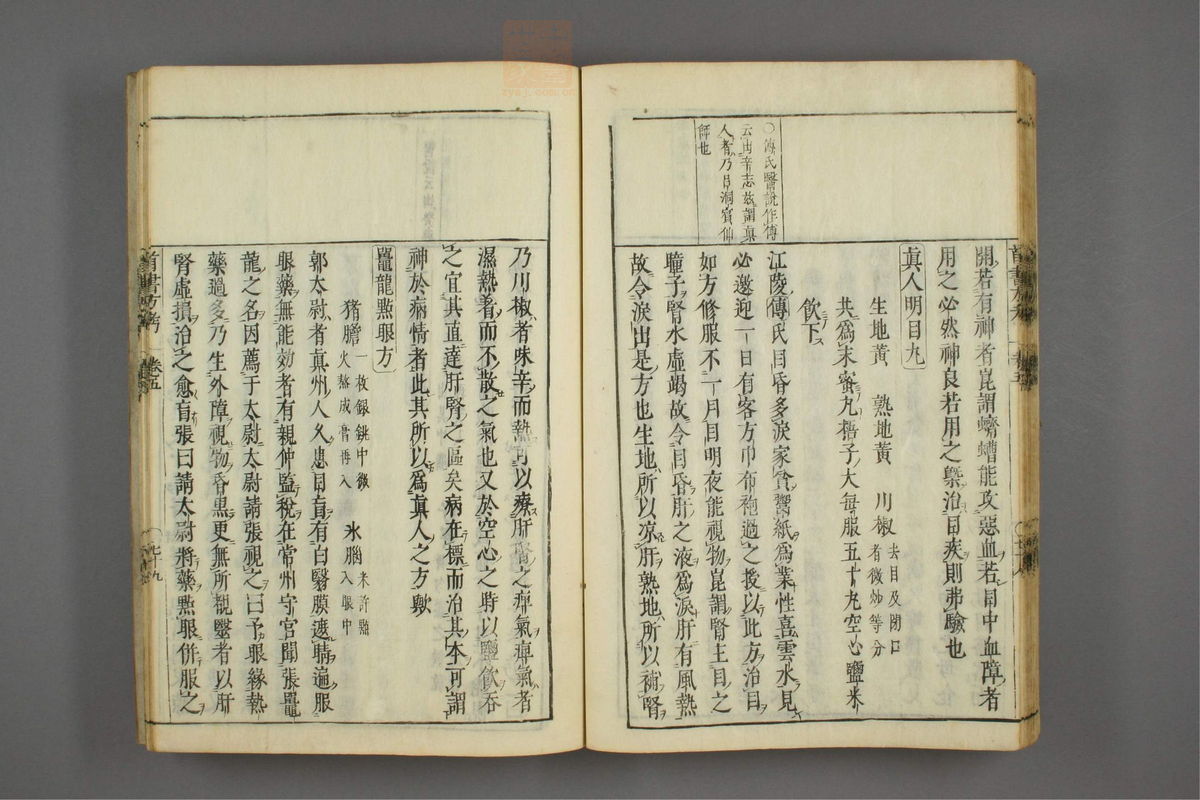 ○傅氏醫說作傅
云由辛志玆謂眞
人者乃呂洞賓仙
師也
開若有神者崑謂蠐螬能攻惡血若目中血障者
用之必然神良若用之槩治目疾則弗驗也
眞人明目丸
生地黃　熟地黃　川椒去目及閉口者微炒等分
共爲末蜜丸梧子大每服五十丸空心鹽米
飲下
江陵傅氏目昏多淚家貧鬻紙爲業性喜雲水見
必邀迎一日有客方巾布袍過之授以此方治目
如方修服不一月目明夜能視物崑謂腎主目之
瞳子腎水虛竭故令目昏肝之液爲淚肝有風熱
故令淚出是方也生地所以凉肝熟地所以補腎
乃川椒者味辛而熱可以療肝腎之痺氣痺氣者
濕熱着而不散之氣也又於空心之時以鹽飲吞
之宜其直達肝腎之區矣病在標而治其本可謂
神於病情者此其所以爲眞人之方歟
鼉龍點眼方
猪膽一枚銀銚中微火熬成膏再入　氷腦米許點入眼中
郭太尉者眞州人久患目盲有白翳膜遮睛遍服
眼藥無能効者有親仲監稅在常州守官聞張鼉
龍之名因薦于太尉太尉請張視之曰予眼緣熱
藥過多乃生外障視物昏黑更無所覩醫者以肝
腎虛損治之愈盲張曰請太尉將藥點眼併服之
卷五
九十九